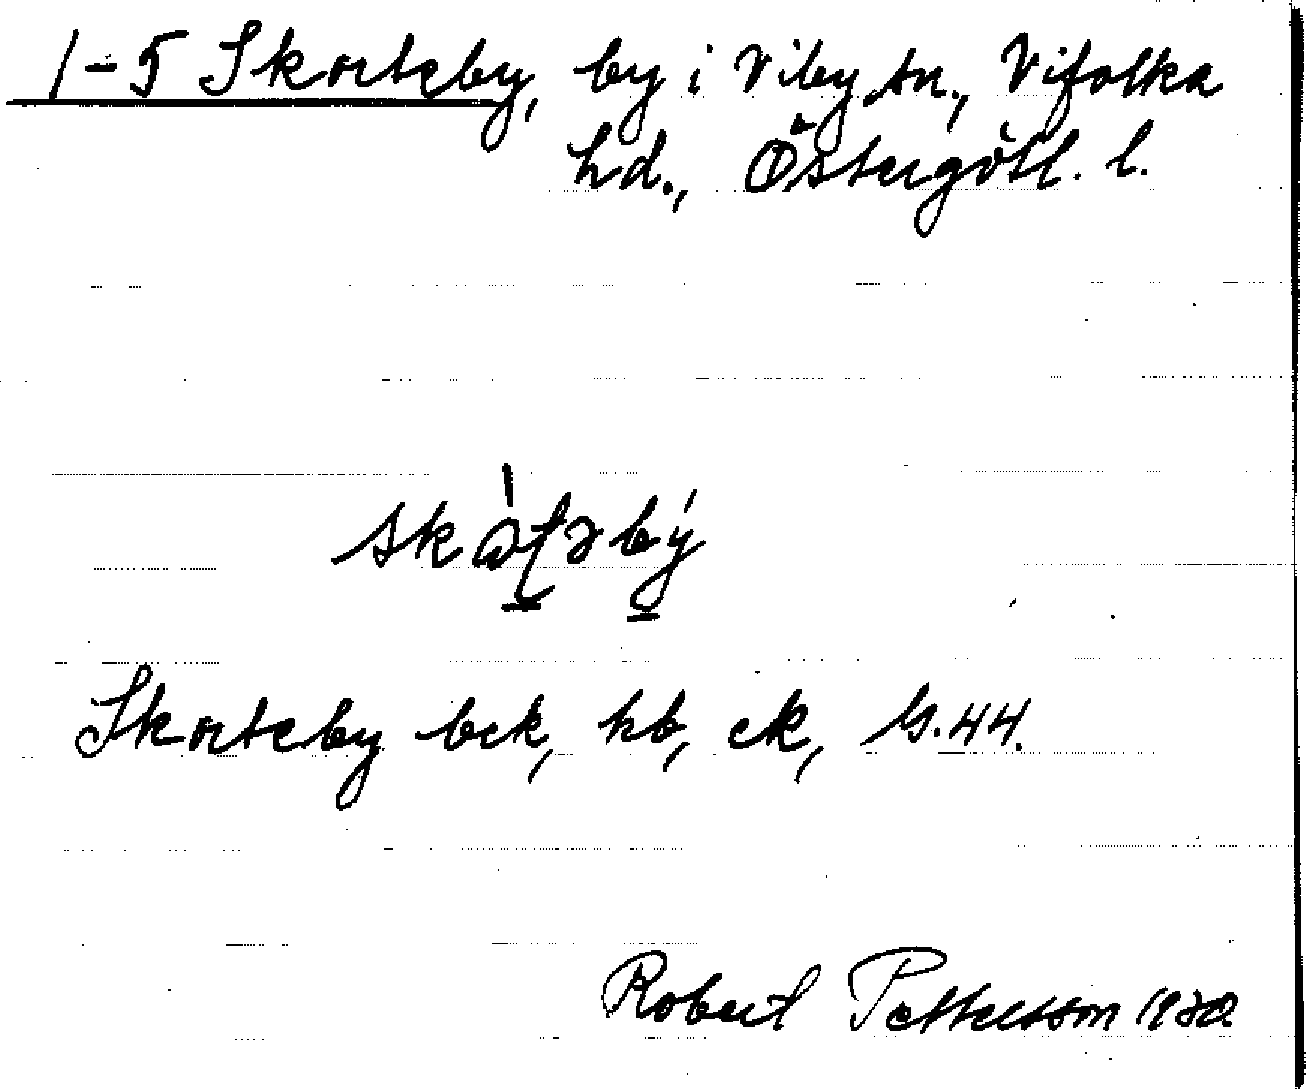 1-5 Skorteby, by i Viby sn., Vifolka
hd., Östergötl. l.
Skorteby bck, hb, ck, G.44.
Robert Pettersson 1930.